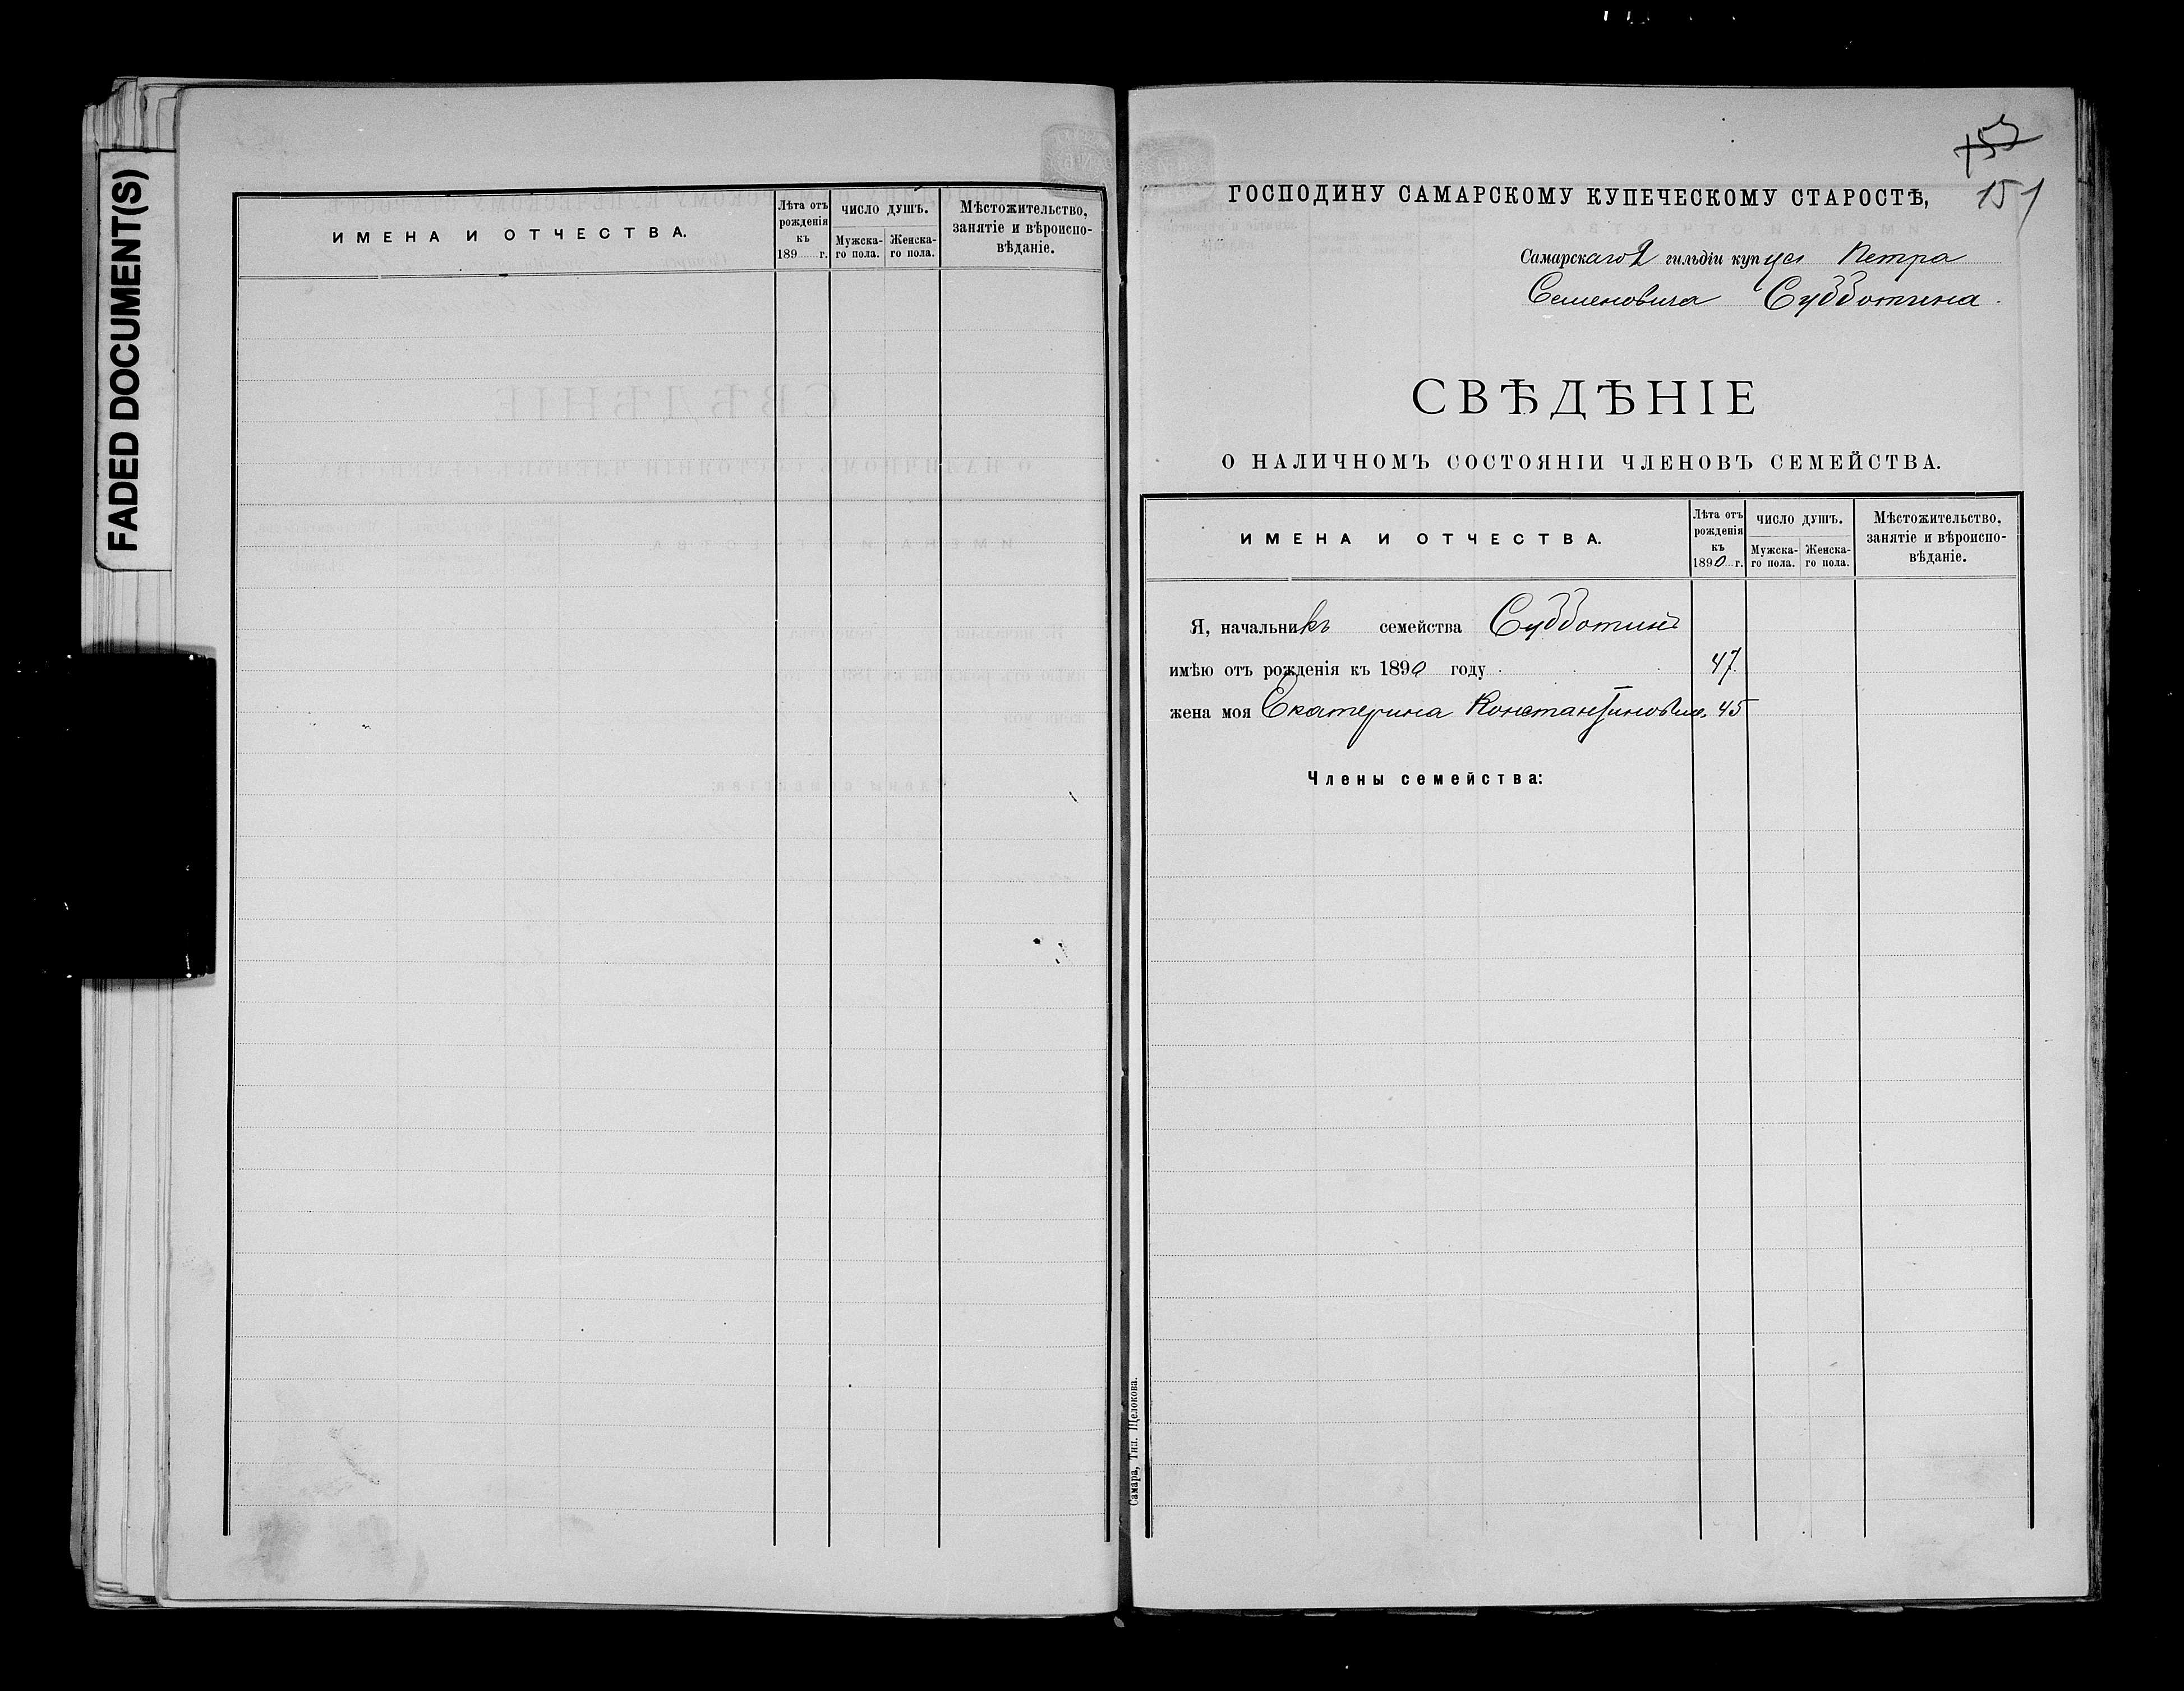 FADED DOCUMENT(S)
ИМЕНА И ОТЧЕСТВА.
Лѣта отъ рожденія къ 189 г.
ЧИСЛО ДУШЪ.
Мужска-го пола.
Женска-го пола.
Мѣстожительство, занятіе и вѣроиспо-вѣданіе.
153
151
ГОСПОДИНУ САМАРСКОМУ КУПЕЧЕСКОМУ СТАРОСТѢ,
Самарскаго 2 гильдіи купца Петра
Семеновича Субботина.
СВѢДѢНІЕ
О НАЛИЧНОМЪ СОСТОЯНІИ ЧЛЕНОВЪ СЕМЕЙСТВА.
ИМЕНА И ОТЧЕСТВА.
Лѣта отъ рожденія къ 1890 г.
ЧИСЛО ДУШЪ.
Мужска-го пола.
Женска-го пола.
Мѣстожительство, занятіе и вѣроиспо-вѣданіе.
Я, начальникъ семейства Субботинъ
имѣю отъ рожденія къ 1890 году 47
жена моя Екатерина Константиновна 45
Члены семейства:
Самара, Тип. Щелокова.